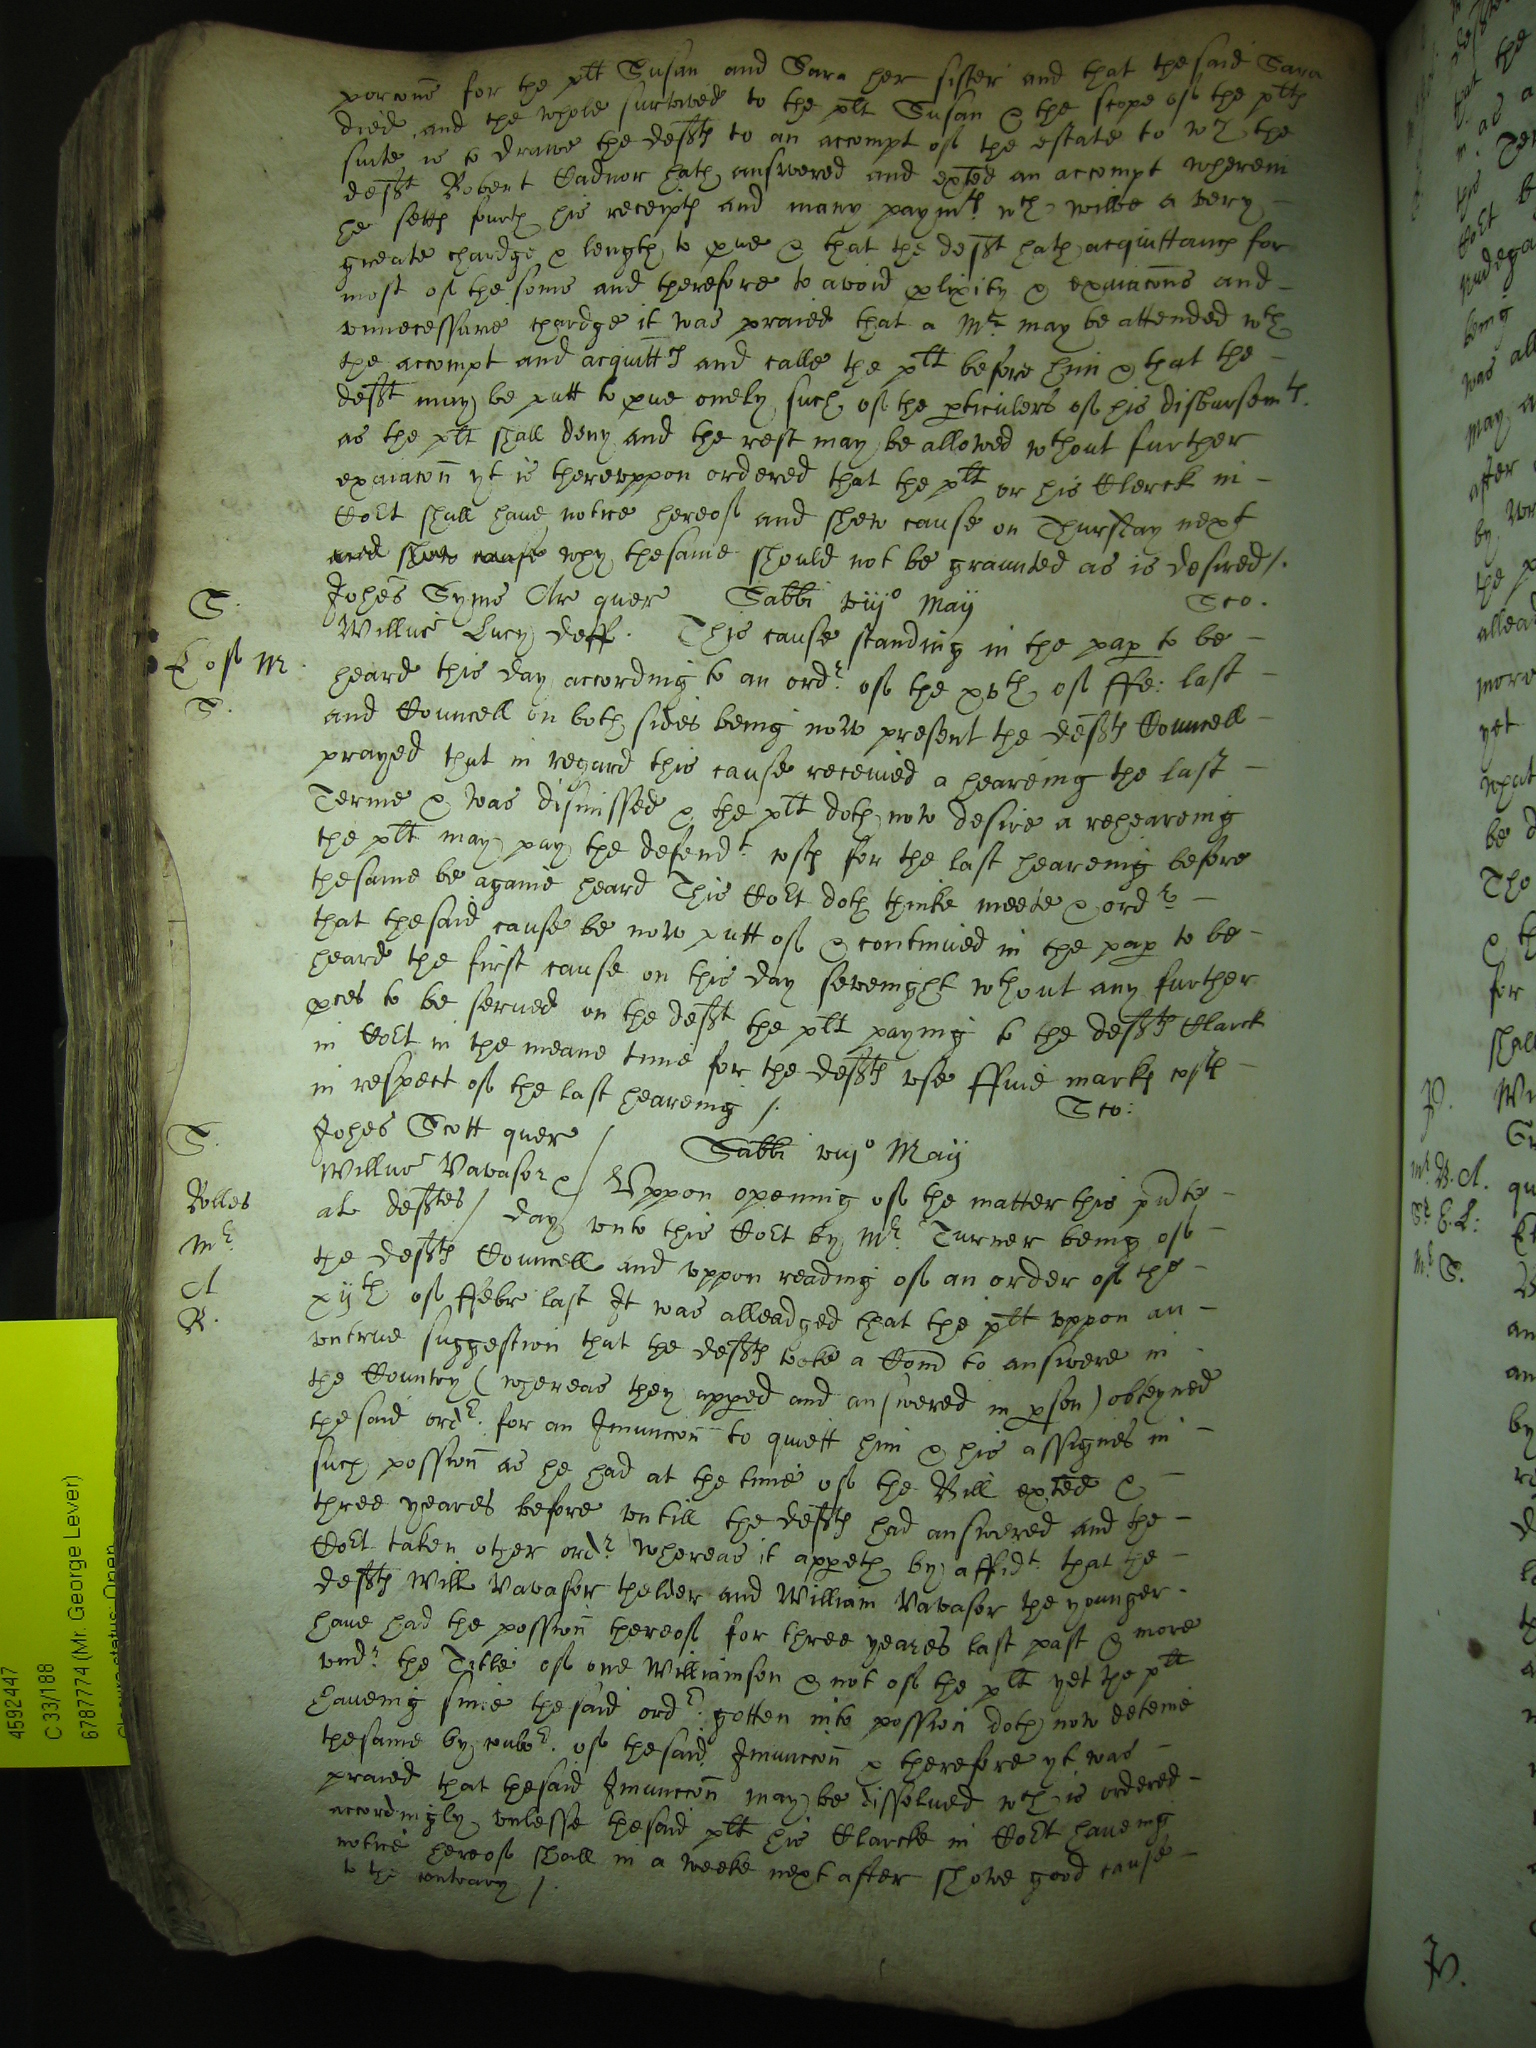 porcons for the plt Susan and Sara her sister and that the said Sara
died and the whole survived to the plt Susan & the scope of the plts
suite is to drawe the defts to an accompt of the estate to wch the
deft Robert Cadnor hath answered and exted an accompt wherein
he setts fourth his receipts and many paymts wch wilbe a very
greate chardge & length to pue & that the deft hath acquittancs for
most of the some and therefore to avoid plixity & exaiacons and
unnecessarie chardge it was praied that a Mr may be attended wth
the accompt and acquittcs and calle the plt before him & that the
deft may be putt to pue onely such of the pticulers of his disbursemts
as the plt shall deny and the rest may be allowed wthout further
exaiacon yt is thereuppon ordered that the plt or his Clerck in
Cort shall have notice hereof and shew cause on Thursday next
and shew cause why thesame should not be graunted as is desired /.
S.
Johes Syms Ar quer Sabbi viijo Maij Sco.
Willus Lucy deff. This cause standing in the pap to be
E of M.
heard this day according to an ordr of the xvth of ffe: last
S.
and Councell on both sides being now present the defts Councell
prayed that in regard this cause received a heareing the last
Terme & was dismissed & the plt doth now desire a reheareing
the plt may pay the defendt costs for the last heareing before
thesame be againe heard This Cort doth thinke meete & ordr
that thesaid cause be now putt of & continued in the pap to be
heard the first cause on this day sevenight wthout any further
pces to be served on the deft the plt paying to the defts Clarck
in Cort in the meane time for the defts use ffive marks costs
in respect of the last heareing /. Sco:
S.
Johes Scott quer / Sabbi viijo Maij
Willus Vavasor &
Rolles
al deftes / Uppon opening of the matter this pnte
day unto this Cort by Mr Turner being of
Mr
the defts Councell and uppon reading of an order of the
A
xijth of ffebr last It was alleadged that the plt uppon an
R.
untrue suggestion that the defts tooke a Com to answere in
the Country (whereas they apped and answered in pson) obteyned
thesaid ordr for an Iniunccon to quiett him & his assignes in
such possion as he had at the time of the Bill exted &
three yeares before untill the defts had answered and the
Cort taken other ordr whereas it appeth by affidt that the
defts Will Vavasor thelder and William Vavasor the younger
have had the possion thereof for three yeares last past & more
undr the Title of one Williamson & not of the plt yet the plt
haveing since thesaid ordr gotten into possion doth now deteine
thesame by coulor of thesaid Iniunccon & therefore yt was
praied that thesaid Iniunccon may be dissolved wch is ordered
accordingly unlesse thesaid plt his Clarcke in Cort haveing
notice hereof shall in a weeke next after shewe good cause
to the contrary /.
4592447
C 33/188
6787774 (Mr. George Lever)
Closure status: Open